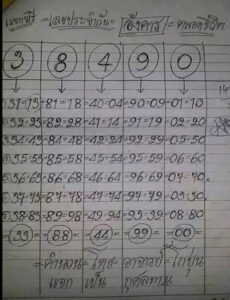 แจกฟรี =เลขประจำวัน= อังคาร =ตลอดชีวิต
3 8 4 9 0
=31-13=81=18=40-04=90-09=01-10
=32-23=82-28=41-14=91-19=02-20
=34-43=84-48=42-24=92-29=05-50
=35-53=85-58=45-54=95-59=06-60
=36-63=86-68=46-64=96-69=07-70
=37-73=87-78=47-74=97-79=03-30
=38-83=89-98=49-94=93-39=08-80
=33=88=44=99=00=
=คำนวน=โดย=อาจารย์=
แจก เป็น